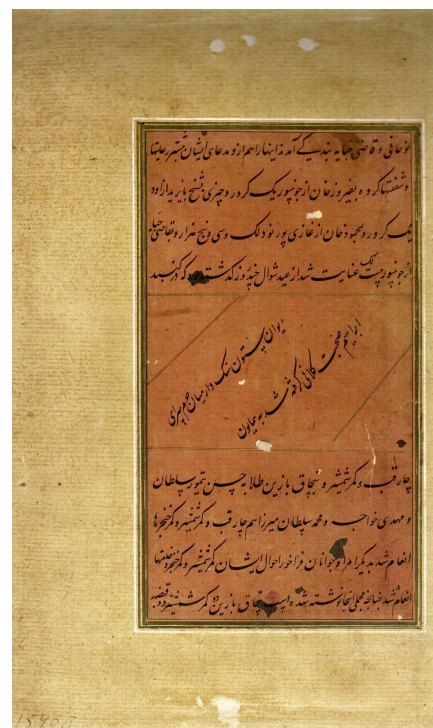 نوحانی و قاضی جیا به بندیکی آمدند اینها را هم از و مدعای ایشان بیشتر رعایتها
و شفقتها کرده بفیروز خان از جونپور یک کرور و چیزی و بشیخ بایزید از اود
یک کرور و محمود خان از غازی پور نود لک و سی و پنج هزار و بقاضی جیا
از جونپور بیست لک عنایت شد از عید شوال چند روز گذشته بود که در گنبد
ایوان ستون سنگ دار میان حرم سرای
ابراهیم صحبت کلانی شد به همایون
چارقب و کمر شمشیر و تپچاق با زین طلا بچین تیمور سلطان
و مهدی خواجه و محمد سلطان میرزا هم چارقب و کمر شمشیر و کمر خنجرها
انعام شد بدیگر امرا و جوانان فراخور احوال ایشان کمر شمشیر و کمر خنجر و خلعتها
انعام شد چنانچه مجملی اینجا نوشته شده اسپ تپچاق با زین دو کمر شمشیر دو قبضه